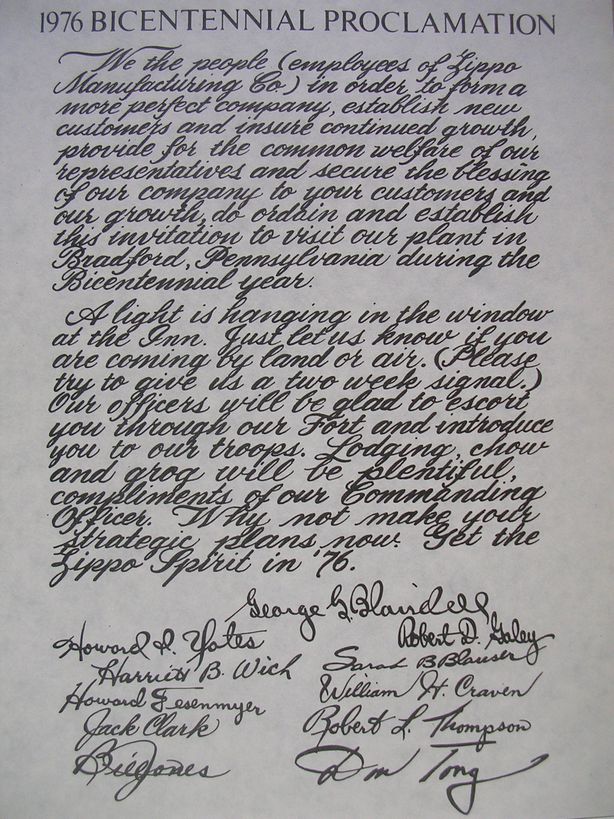 1976 BICENTENNIAL PROCLAMATION
We the people (employees of Zippo
Manufacturing Co.) in order to form a
more perfect company, establish new
customers and insure continued growth,
provide for the common welfare of our
representatives and secure the blessing
of our company to your customers and
our growth, do ordain and establish
this invitation to visit our plant in
Bradford, Pennsylvania during the
Bicentennial year.
A light is hanging in the window
at the Inn. Just let us know if you
are coming by land or air. (Please
try to give us a two week signal.)
Our officers will be glad to escort
you through our Fort and introduce
you to our troops. Lodging, chow
and grog will be plentiful,
compliments of our Commanding
Officer. Why not make your
strategic plans now. Get the
Zippo Spirit in '76.
George G. Blaisdell
Howard I. Yates Robert D. Galey
Harriett B. Wick Sarah B Blauser
Howard Fesenmyer William H. Craven
Jack Clark Robert L. Thompson
Bill Jones Don Tong